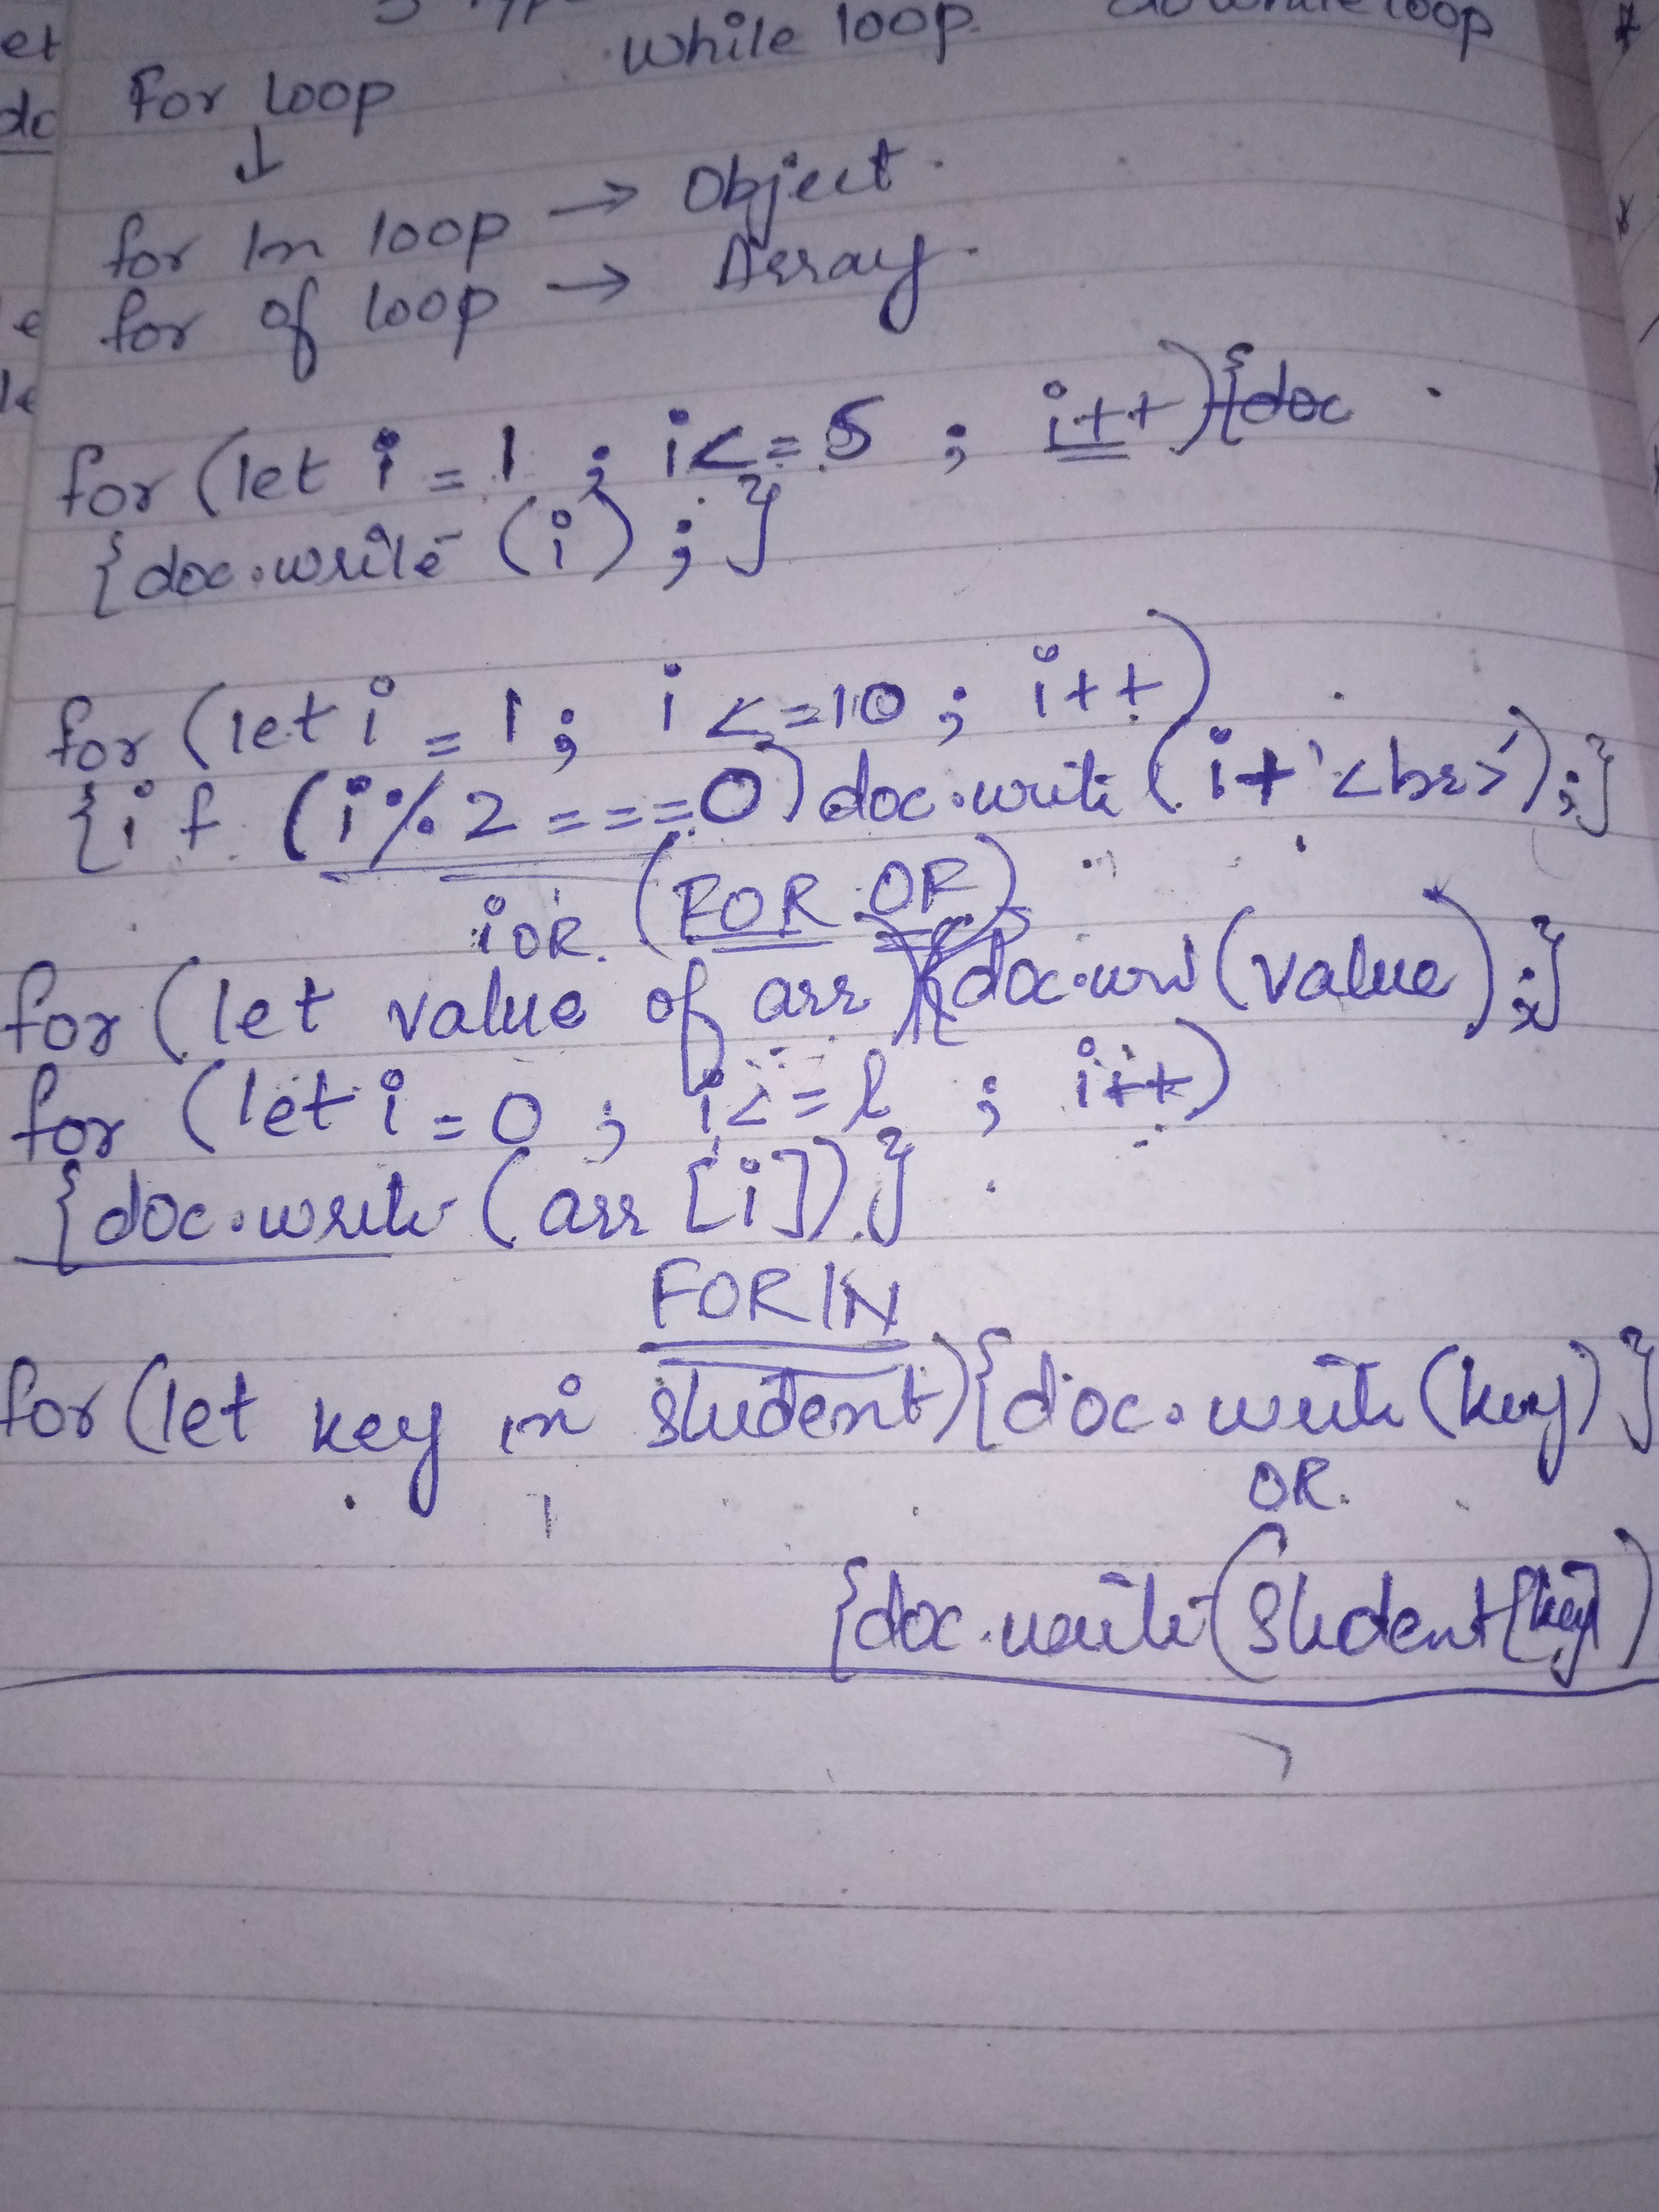 while loop.
loop
For Loop
↓
for In loop → Object.
for of loop → Array.
for (let i = 1 ; i <= 5 ; i++) {doc
{doc.write (i) ; }
for (let i = 1 ; i <= 10 ; i++)
{if (i % 2 === 0) doc.write (i + '<br>') ;}
i OR. (FOR OF)
for (let value of arr) {doc.wri (value) ;}
for (let i = 0 ; i <= l ; i++)
{doc.write (arr [i]) }
FOR IN
for (let key in student) {doc.write (key) }
OR.
{doc.write (Student [key])